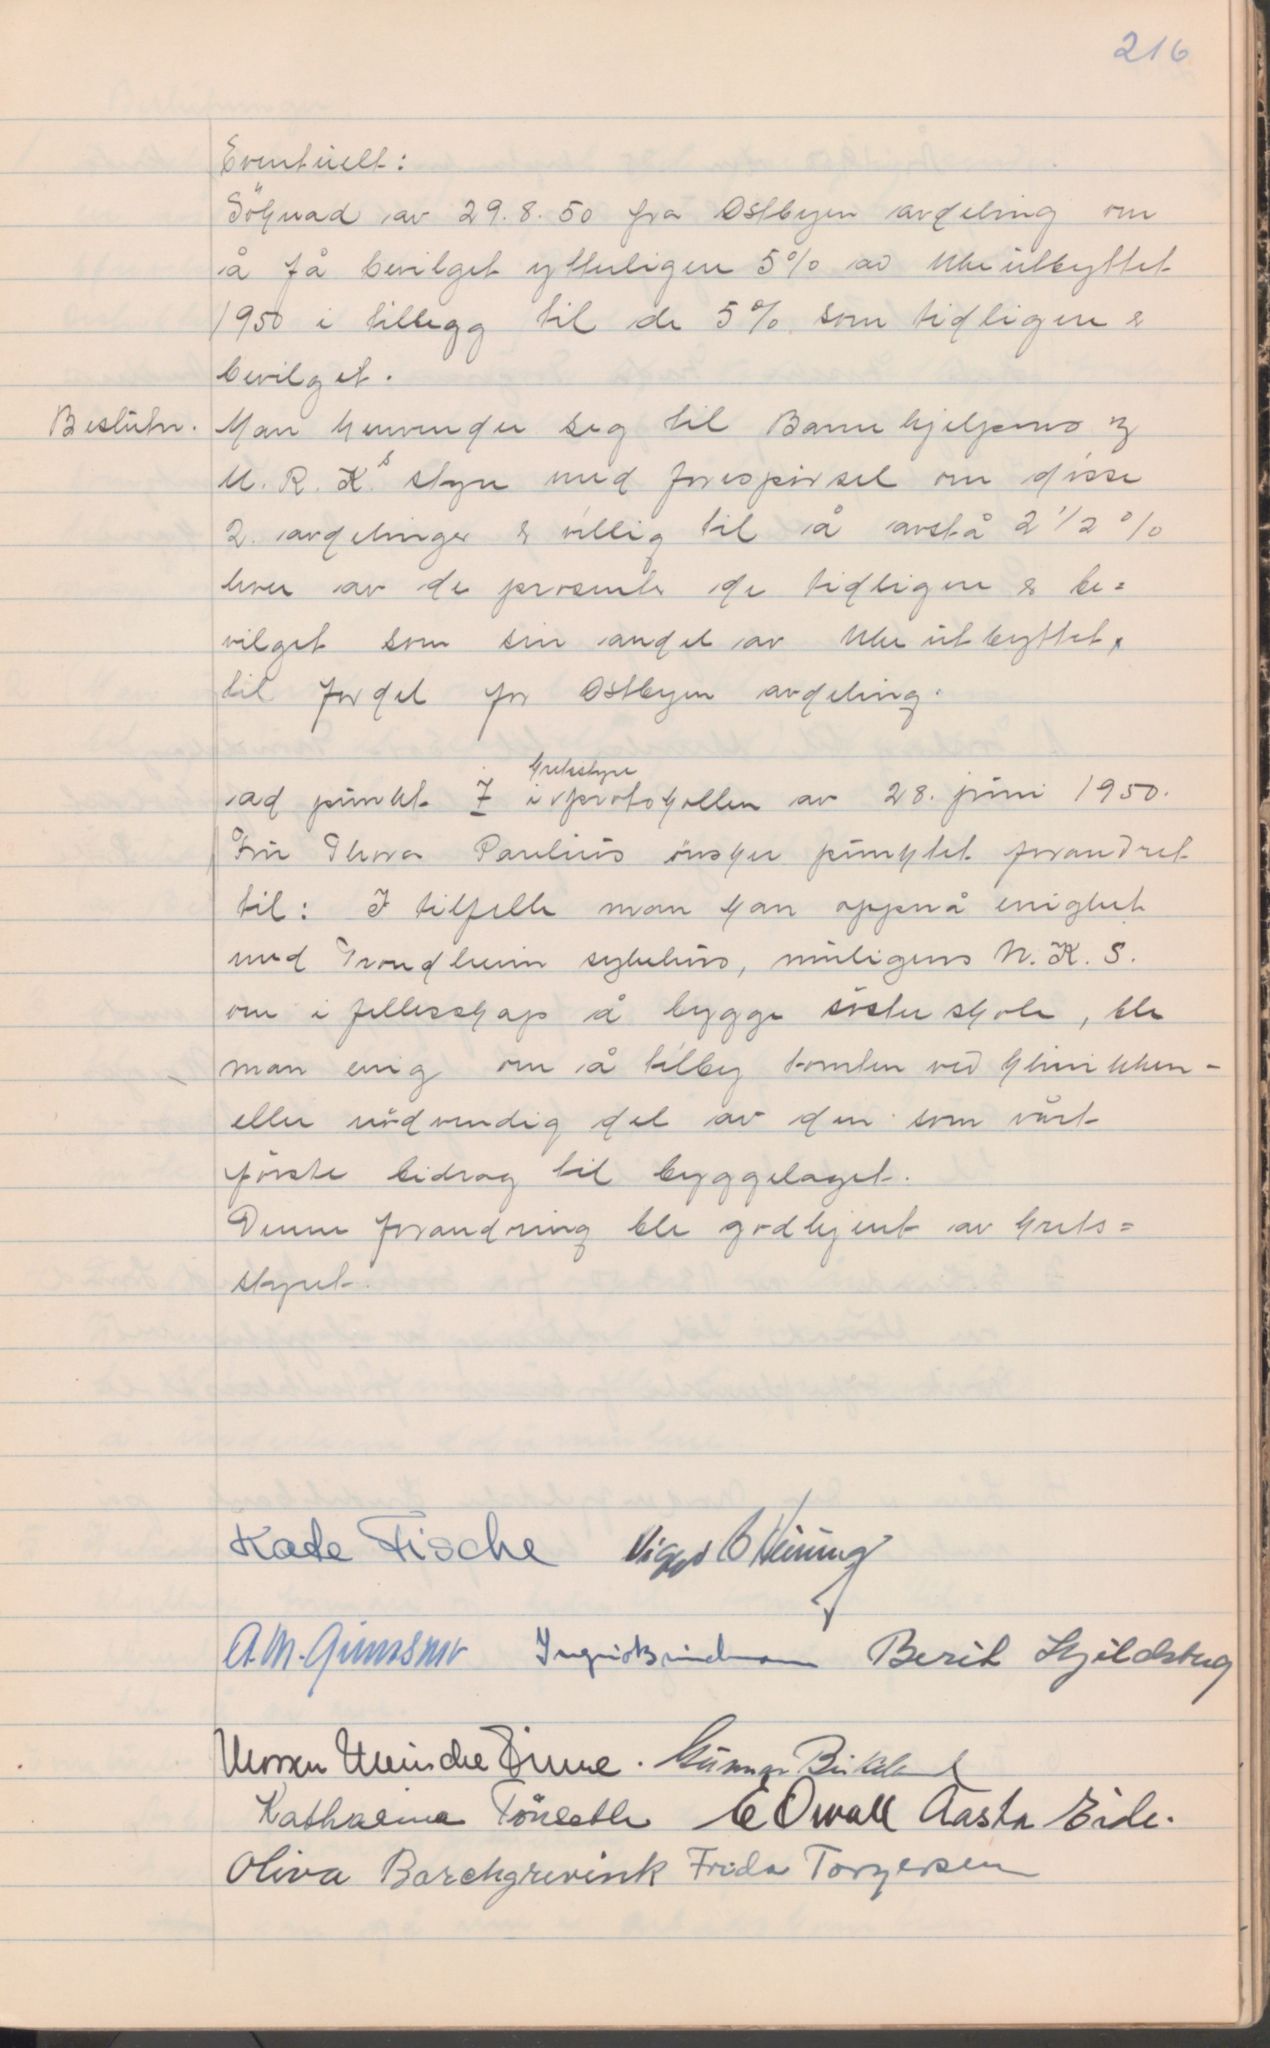 216
Eventuelt:
Söknad av 29.8.50 fra Østbyen avdeling om
å få bevilget ytterligere 5% av Uke utbyttet
1950 i tillegg til de 5% som tidligere er
bevilget.
Beslutn. Man henvender seg til Barnehjelpens og
U.R.K.s styre med forespørsel om disse
2. avdelinger er villig til å avstå 2 1/2 %
hver av de prosenter de tidligere er be=
vilget som sin andel av Uke utbyttet,
til fordel for Østbyen avdeling.
ad punkt 7 i kretsstyreprotokollen av 28. juni 1950.
Fru Thora Paulius ønsker punktet forandret
til: I tilfelle man kan oppnå enighet
med Trondheim sykehus, muligens N.K.S.
om i fellesskap å bygge søsterskole, ble
man enig om å tilby tomten ved klinikken -
eller nödvendig del av den som vårt
første bidrag til byggelaget.
Denne forandring ble godkjent av krets=
styret.
Kate Fische Viggo B Heining
A.M. Ingrid Berit Skjeldsberg
Gunnar
Katharina E Owall Aasta Eide.
Oliva Borchgrevink Frida Torgersen